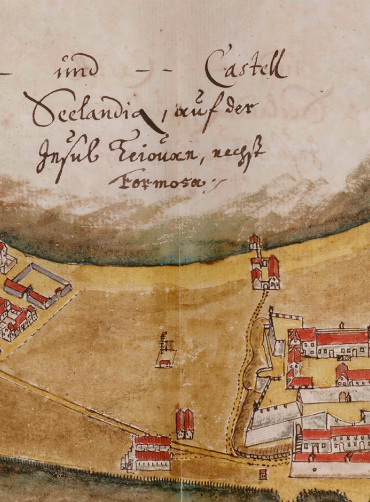 – und – – Castell
Seelandia, auf der
Insul Teiouan, nechst
Formosa.